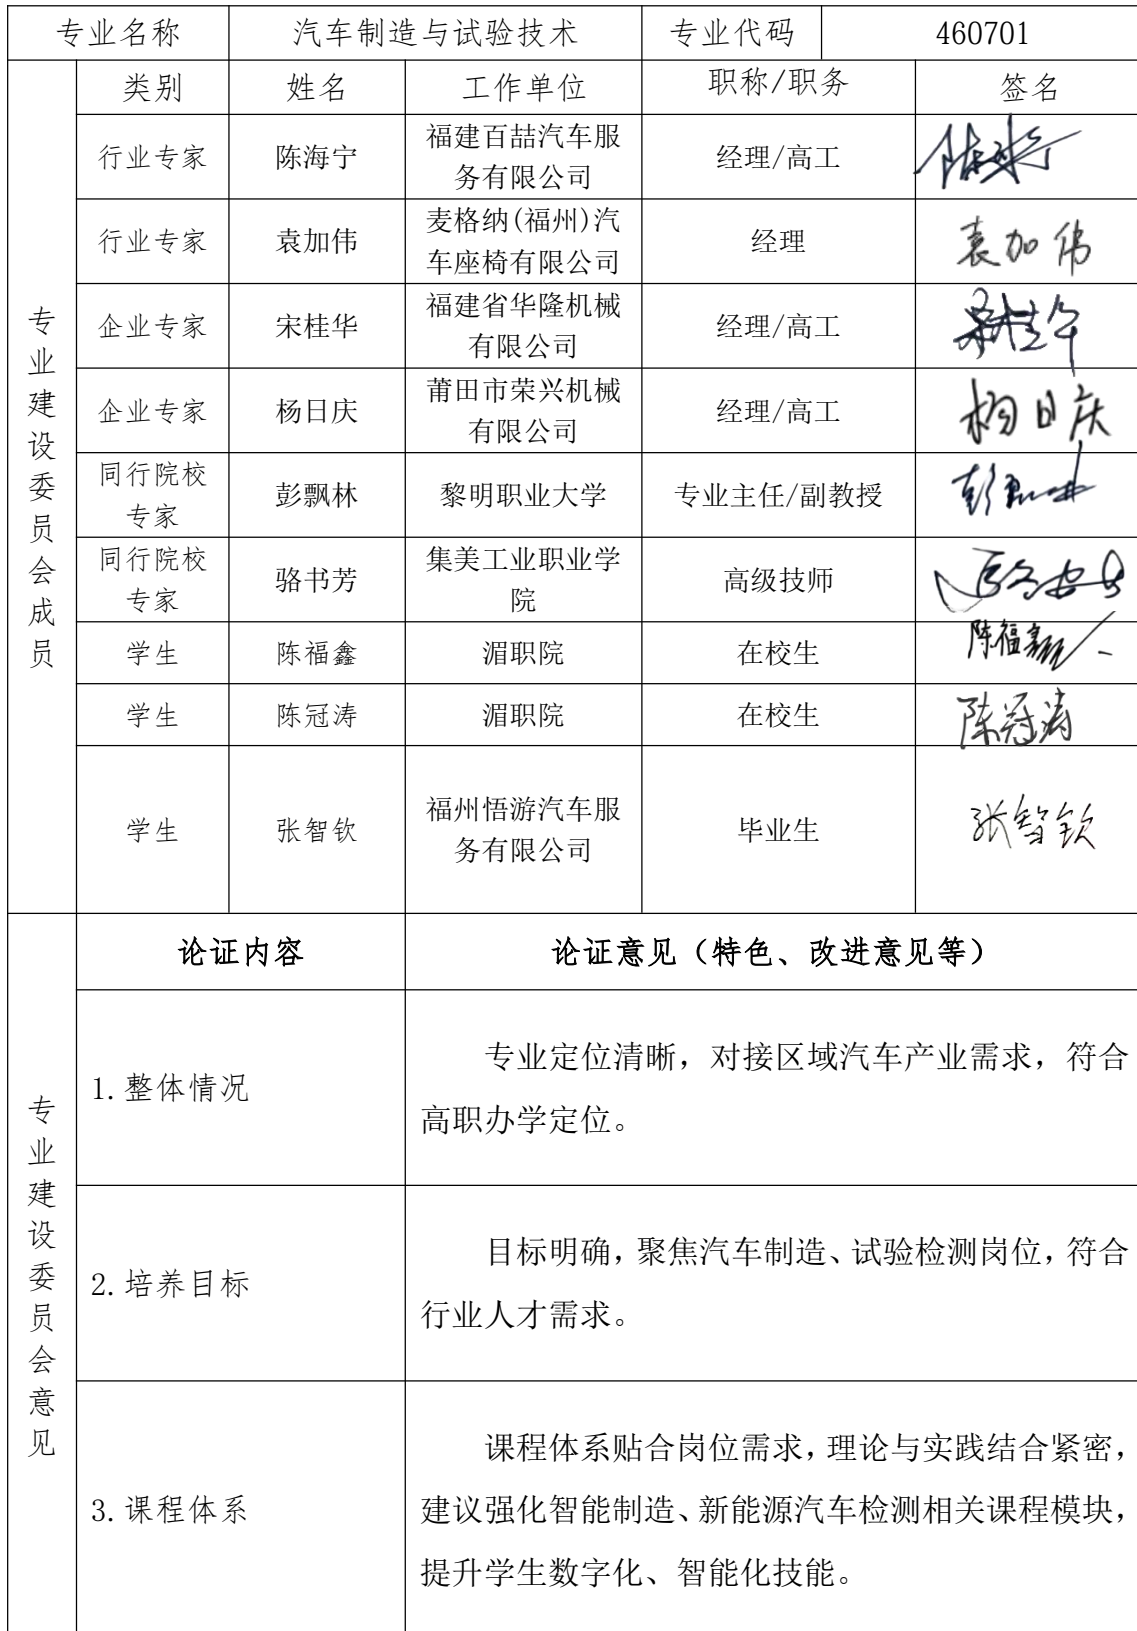 专业名称 汽车制造与试验技术 专业代码 460701
专业建设委员会成员
类别 姓名 工作单位 职称/职务 签名
行业专家 陈海宁 福建百喆汽车服务有限公司 经理/高工
行业专家 袁加伟 麦格纳(福州)汽车座椅有限公司 经理 袁加伟
企业专家 宋桂华 福建省华隆机械有限公司 经理/高工
企业专家 杨日庆 莆田市荣兴机械有限公司 经理/高工 杨日庆
同行院校专家 彭飘林 黎明职业大学 专业主任/副教授
同行院校专家 骆书芳 集美工业职业学院 高级技师
学生 陈福鑫 湄职院 在校生 陈福鑫
学生 陈冠涛 湄职院 在校生 陈冠涛
学生 张智钦 福州悟游汽车服务有限公司 毕业生 张智钦
专业建设委员会意见
论证内容 论证意见（特色、改进意见等）
1.整体情况
专业定位清晰，对接区域汽车产业需求，符合
高职办学定位。
2.培养目标
目标明确，聚焦汽车制造、试验检测岗位，符合
行业人才需求。
3.课程体系
课程体系贴合岗位需求，理论与实践结合紧密，
建议强化智能制造、新能源汽车检测相关课程模块，
提升学生数字化、智能化技能。